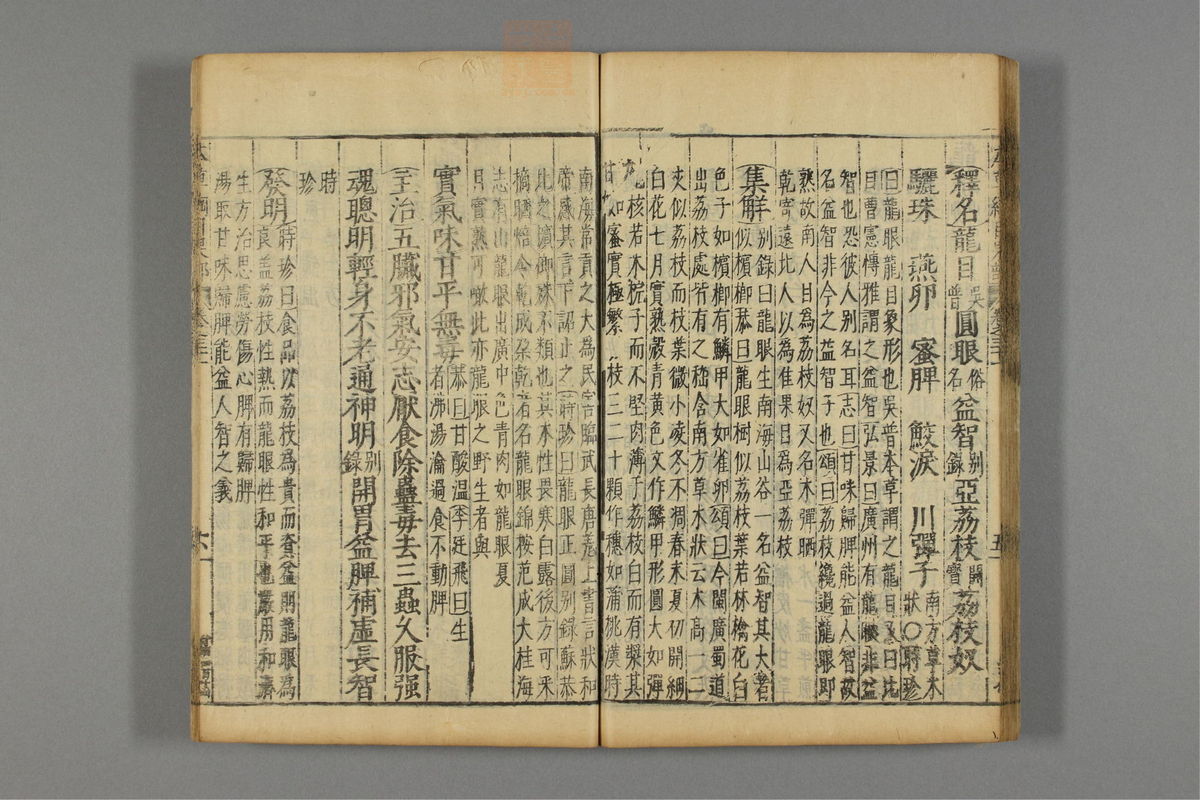 釋名龍目吳普圓眼俗名益智別錄亞荔枝開寶荔枝奴
驪珠 燕卵 蜜脾 鮫淚 川彈子南方草木狀〇時珍
曰龍眼龍目象形也吳普本草謂之龍目又曰比
目曹憲博雅謂之益智弘景曰廣州有龍眼非益
智也恐彼人別名耳志曰甘味歸脾能益人智故
名益智非今之益智子也頌曰荔枝纔過龍眼即
熟故南人目為荔枝奴又名木彈晒
乾寄遠北人以為佳果目為亞荔枝
集解別錄曰龍眼生南海山谷一名益智其大者
似檳榔恭曰龍眼樹似荔枝葉若林檎花白
色子如檳榔有鱗甲大如雀卵頌曰今閩廣蜀道
出荔枝處皆有之嵇含南方草木狀云木高一二
丈似荔枝而枝葉微小凌冬不凋春末夏初開細
白花七月實熟殼青黃色文作鱗甲形圓大如彈
丸核若木梡子而不堅肉薄于荔枝白而有漿其
甘如蜜實極繁枝三二十顆作穗如蒲桃漢時
南海常貢之大為民害臨武長唐羌上書言狀和
帝感其言下詔止之時珍曰龍眼正圓別錄蘇恭
比之檳榔殊不類也其木性畏寒白露後方可采
摘晒焙令乾成朶乾者名龍眼錦按范成大桂海
志有山龍眼出廣中色青肉如龍眼夏
月實熟可噉此亦龍眼之野生者與
實氣味甘平無毒恭曰甘酸温李廷飛曰生
者沸湯瀹過食不動脾
主治五臟邪氣安志厭食除蠱毒去三蟲久服强
魂聰明輕身不老通神明別錄開胃益脾補虛長智
時珍
發明時珍曰食品以荔枝為貴而資益則龍眼為
良盖荔枝性熱而龍眼性和平也嚴用和濟
生方治思慮勞傷心脾有歸脾
湯取甘味歸脾能益人智之義